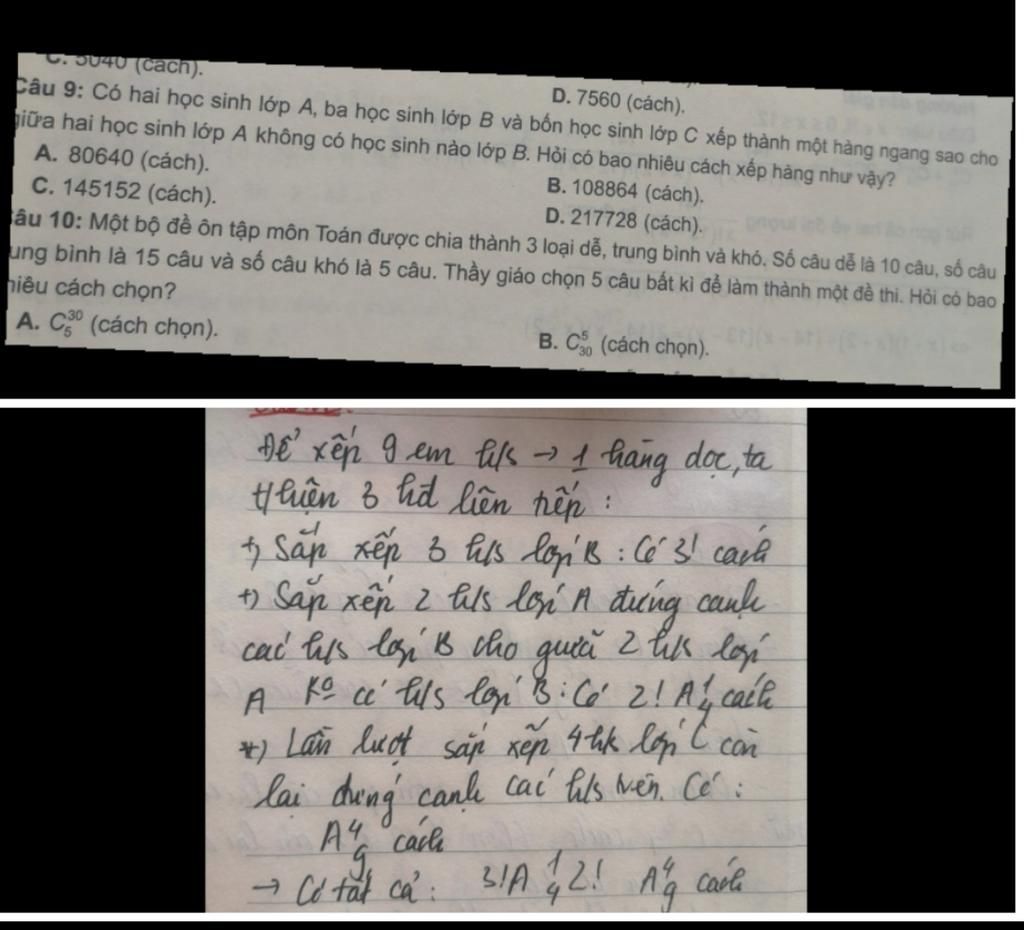 C. 5040 (cách).
D. 7560 (cách).
Câu 9: Có hai học sinh lớp A, ba học sinh lớp B và bốn học sinh lớp C xếp thành một hàng ngang sao cho
giữa hai học sinh lớp A không có học sinh nào lớp B. Hỏi có bao nhiêu cách xếp hàng như vậy?
A. 80640 (cách).
B. 108864 (cách).
C. 145152 (cách).
D. 217728 (cách).
âu 10: Một bộ đề ôn tập môn Toán được chia thành 3 loại dễ, trung bình và khó. Số câu dễ là 10 câu, số câu
ung bình là 15 câu và số câu khó là 5 câu. Thầy giáo chọn 5 câu bất kì để làm thành một đề thi. Hỏi có bao
hiêu cách chọn?
A. C₅³⁰ (cách chọn).
B. C₃₀⁵ (cách chọn).
Để xếp 9 em h/s → 1 hàng dọc, ta
t/hiện 3 hđ liên tiếp :
+) Sắp xếp 3 h/s lớp B : Có 3! cách
+) Sắp xếp 2 h/s lớp A đứng cạnh
các h/s lớp B cho giữa 2 h/s lớp
A k⁰ có h/s lớp B : Có 2! A₄¹ cách
*) Lần lượt sắp xếp 4 hk lớp C còn
lại đứng cạnh các h/s trên. Có :
A₉⁴ cách
→ Có tất cả : 3! A₄¹ 2! A₉⁴ cách